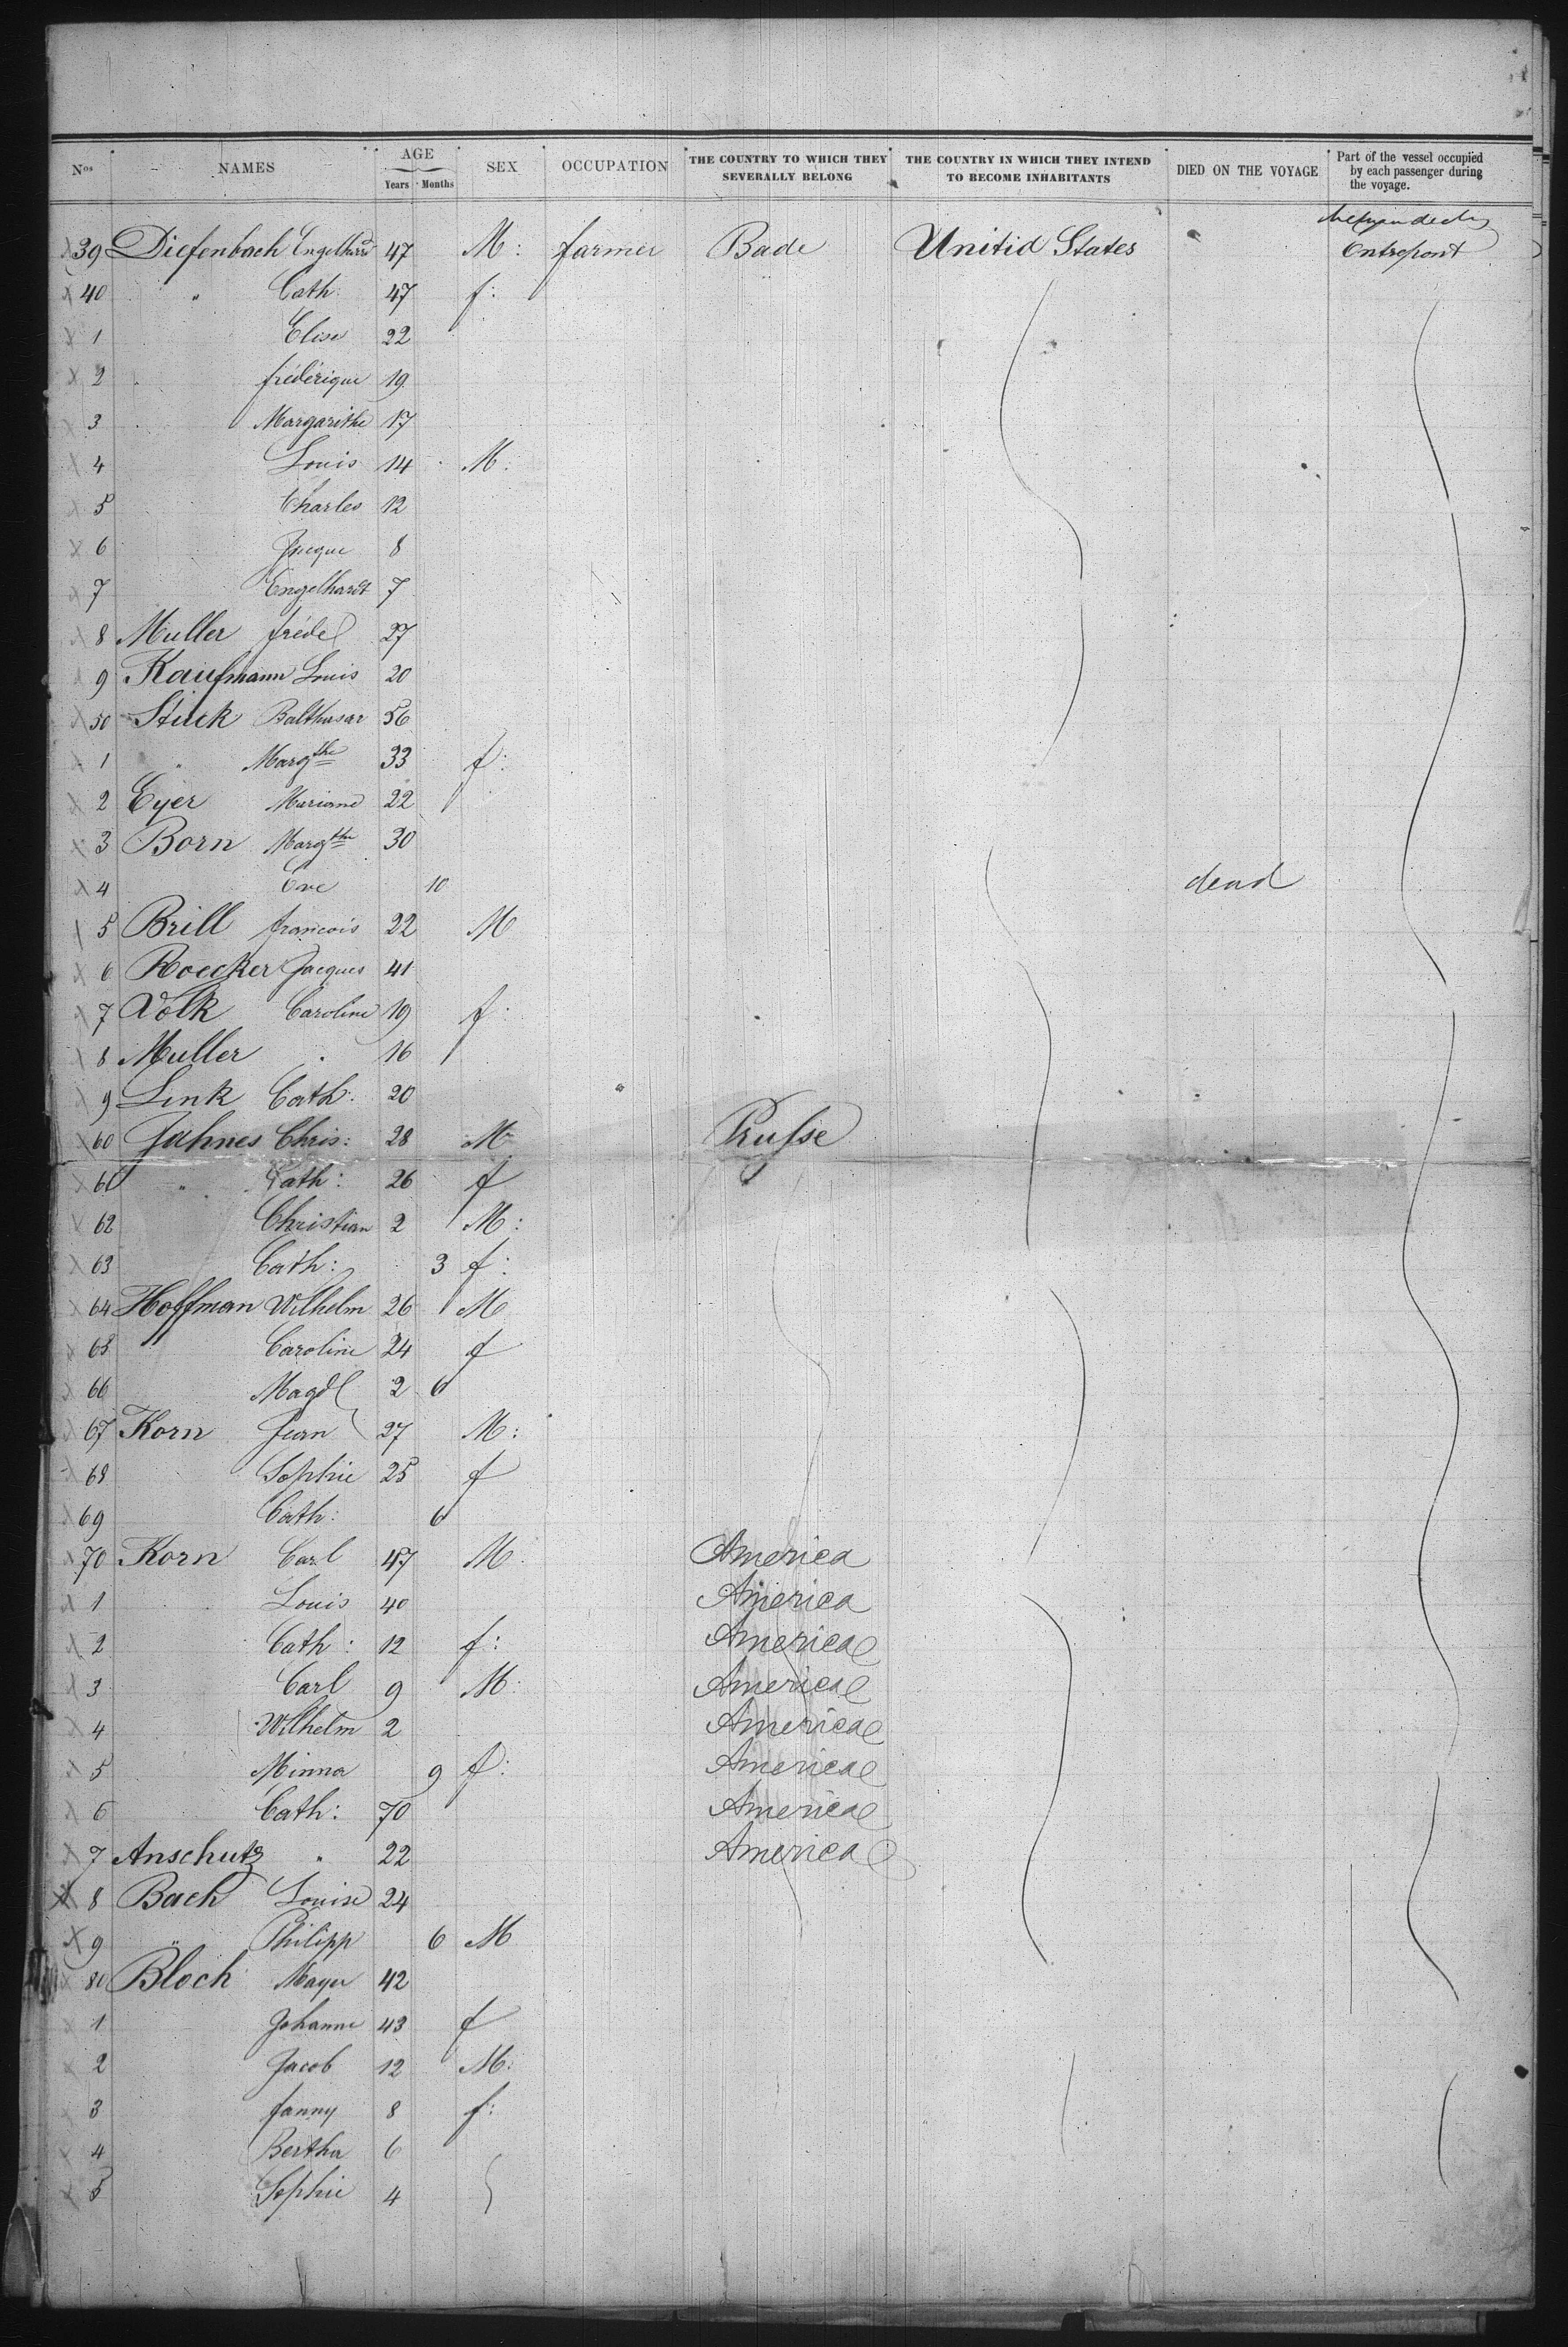 Nos NAMES AGE Years Months SEX OCCUPATION THE COUNTRY TO WHICH THEY SEVERALLY BELONG THE COUNTRY IN WHICH THEY INTEND TO BECOME INHABITANTS DIED ON THE VOYAGE Part of the vessel occupied by each passenger during the voyage.
39 Diefenbach Engelhard 47 M: farmer Bade Unitid States Entrepont
40 " Cath: 47 f:
1 Elise 22
2 fréderique 19
3 Margarithe 17
4 Louis 14 M:
5 Charles 12
6 Jacque 8
7 Engelhardt 7
8 Muller fréde 27
9 Kaufmann Louis 20
50 Stuck Balthasar 56
1 " Margthe 33 f:
2 Eyer Mariane 22
3 Born Margthe 30
4 Eve 10 dead
5 Brill francois 22 M
6 Roecker Jacques 41
7 Volk Caroline 19 f:
8 Muller " 16
9 Link Cath: 20
60 Jahnes Chris: 28 M Prusse
61 " Cath: 26 f
62 Christian 2 M:
63 Cath: 3 f:
64 Hoffman Wilhelm 26 M
65 Caroline 24 f
66 Magdl 2 6
67 Korn Jean 27 M:
68 Sophie 25 f
69 Cath: 6
70 Korn Carl 47 M: America
1 Louis 40 America
2 Cath: 12 f: America
3 Carl 9 M: America
4 Wilhelm 2 America
5 Minna 9 f: America
6 Cath: 70 America
7 Anschutz " 22 America
8 Bach Louise 24
9 " Philipp 6 M
80 Bloch Mayer 42
1 Johanne 43 f
2 Jacob 12 M:
3 fanny 8 f:
4 Bertha 6
5 Sophie 4